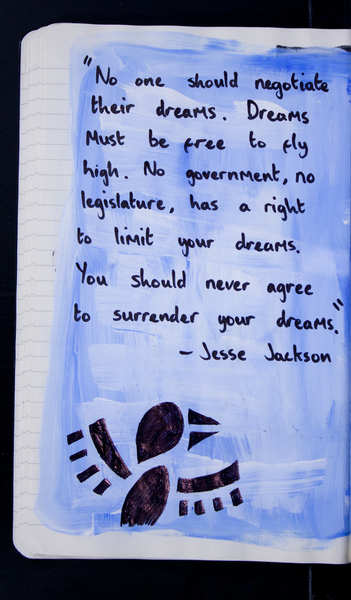 "No one should negotiate
their dreams. Dreams
Must be free to fly
high. No government, no
legislature, has a right
to limit your dreams.
You should never agree
to surrender your dreams."
- Jesse Jackson